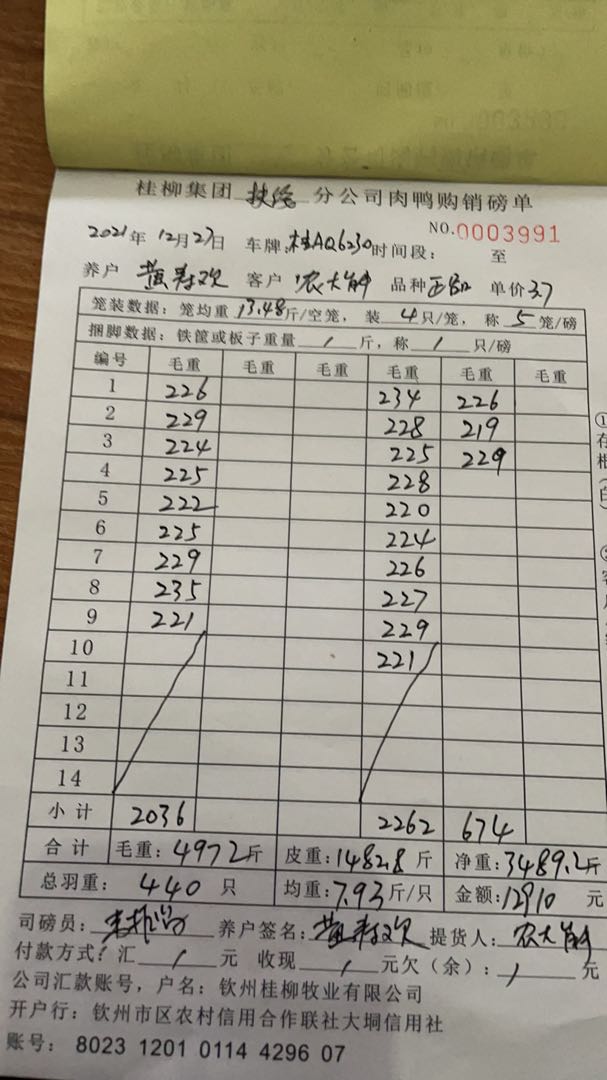 桂柳集团 扶绥 分公司肉鸭购销磅单
NO.0003991
2021年 12月27日 车牌:桂AQ6230时间段: 至
养户 黄寿欢 客户 农大 品种 单价 3.7
笼装数据:笼均重 13.48斤/空笼, 装 4只/笼, 称 5笼/磅
捆脚数据:铁筐或板子重量 / 斤,称 / 只/磅
编号 毛重 毛重 毛重 毛重 毛重 毛重
1 226 234 226
2 229 228 219
3 224 225 229
4 225 228
5 222 220
6 225 224
7 229 226
8 235 227
9 221 229
10 221
11
12
13
14
小计 2036 2262 674
合计 毛重:4972斤 皮重:1482.8 斤 净重:3489.2斤
总羽重: 440 只 均重:7.93斤/只 金额:12910 元
司磅员: 养户签名:黄寿欢 提货人:农大
付款方式:汇 / 元 收现 / 元欠(余): / 元
公司汇款账号,户名:钦州桂柳牧业有限公司
开户行:钦州市区农村信用合作联社大垌信用社
账号: 8023 1201 0114 4296 07